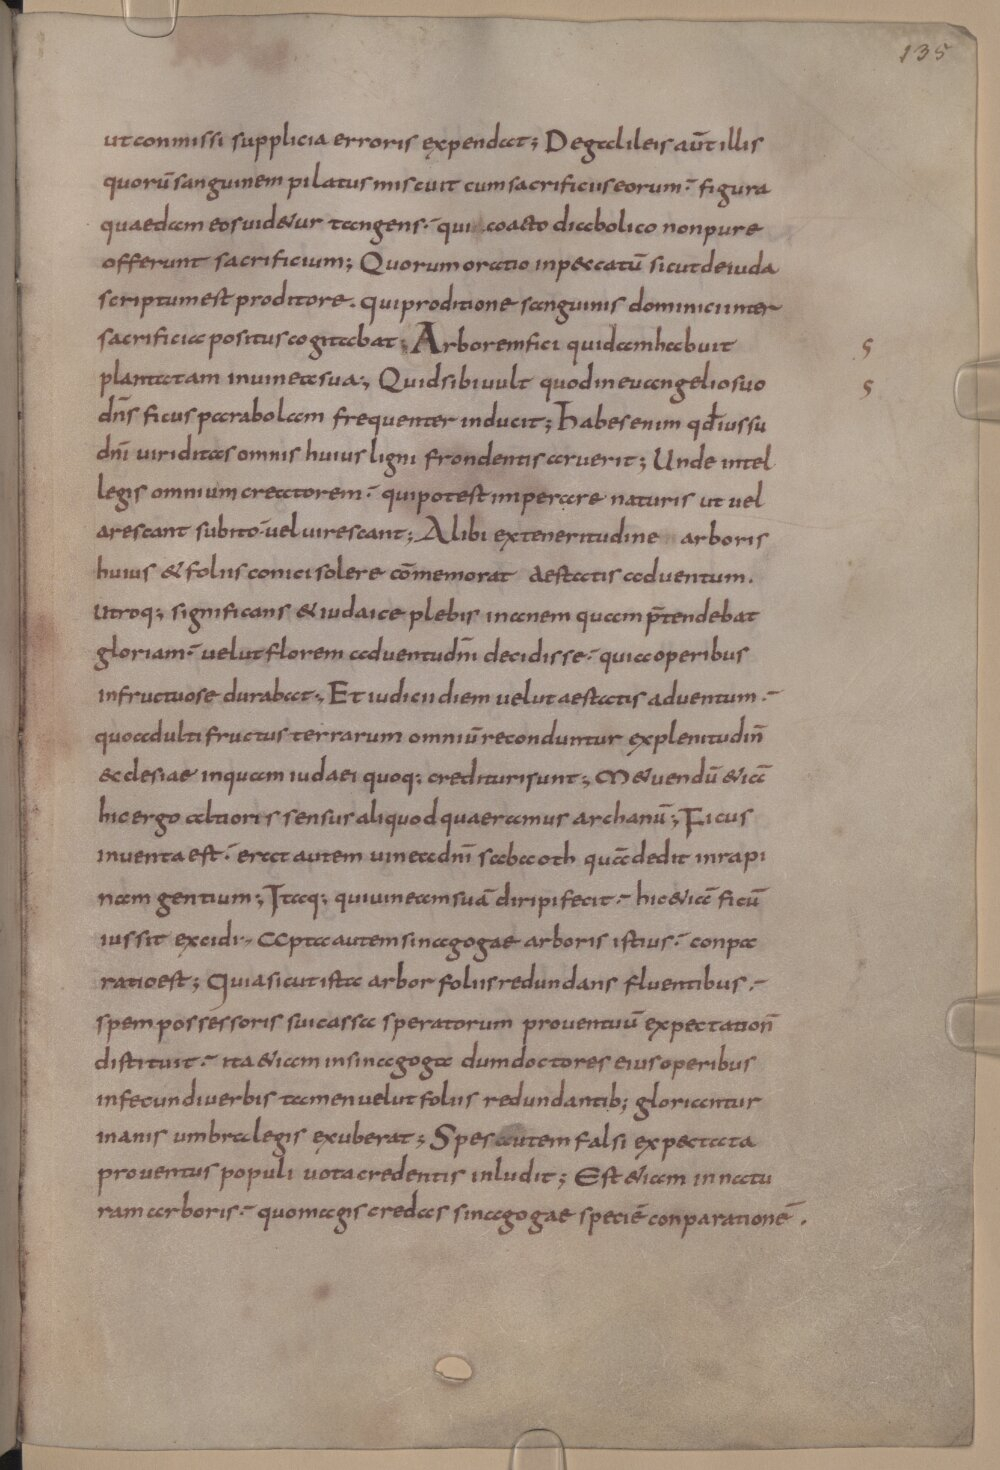 135
ut conmissi supplicia erroris expendat; De galileis aūt illis
quorū sanguinem pilatus miscuit cum sacrificiis eorum; figura
quaedam eos uid&ur tangens; qui coacto diabolico non pure
offerunt sacrificium; Quorum oratio in peccatū sicut de iuda
scriptum est proditore. qui proditione sanguinis dominici inter
sacrificia positus cogitabat; Arborem fici quidam habuit
plantatam in uinea sua; Quid sibi uult quod in euangelio suo
dn̄s ficus parabolam frequenter inducit; habes enim qđ iussu
dn̄i uiriditas omnis huius ligni frondentis aruerit; Unde intel
legis omnium creatorem; qui potest imperare naturis ut uel
arescant subito; uel uirescant; Alibi ex teneritudine arboris
huius & foliis conici solere cōmemorat aestatis aduentum.
Utroq; significans & iudaice plebis inanem quam p̄tendebat
gloriam; uelut florem aduentu dn̄i decidisse; quia operibus
infructuose durabat; Et iudicii diem uelut aestatis aduentum;
quo adulti fructus terrarum omniū reconduntur ex plenitudin̄
ecclesiae in quam iudaei quoq; credituri sunt; M&uendū &iā
hic ergo altioris sensus aliquod quaeramus archanū; Ficus
inuenta est; erat autem uinea dn̄i sabaoth quā dedit in rapi
nam gentium; Itaq; qui uineam suā diripi fecit; hic &iā ficū
iussit excidi; Apta autem sinagogae arboris istius; conpa
ratio est; Quia sicut ista arbor foliis redundans fluentibus;
spem possessoris sui cassa speratorum prouentuū expectation̄
distituit; ita &iam in sinagoga dum doctores eius operibus
infecundi uerbis tamen uelut foliis redundantib; gloriantur
inanis umbra legis exuberat; Spes autem falsi expectata
prouentus populi uota credentis inludit; Est &iam in natu
ram arboris; quo magis credas sinagogae speciē conparationē.
s
s